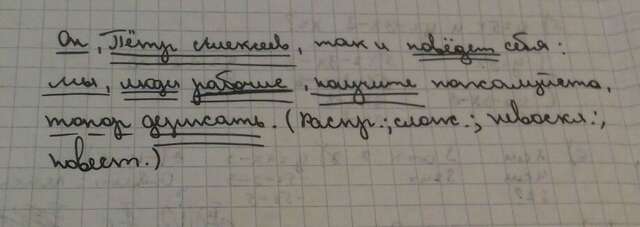 Он, Пётр Алексеев, так и поведет себя:
мы, люди рабочие, научите пожалуйста,
топор держать. (распр.; слож.; невоскл.;
повест.)